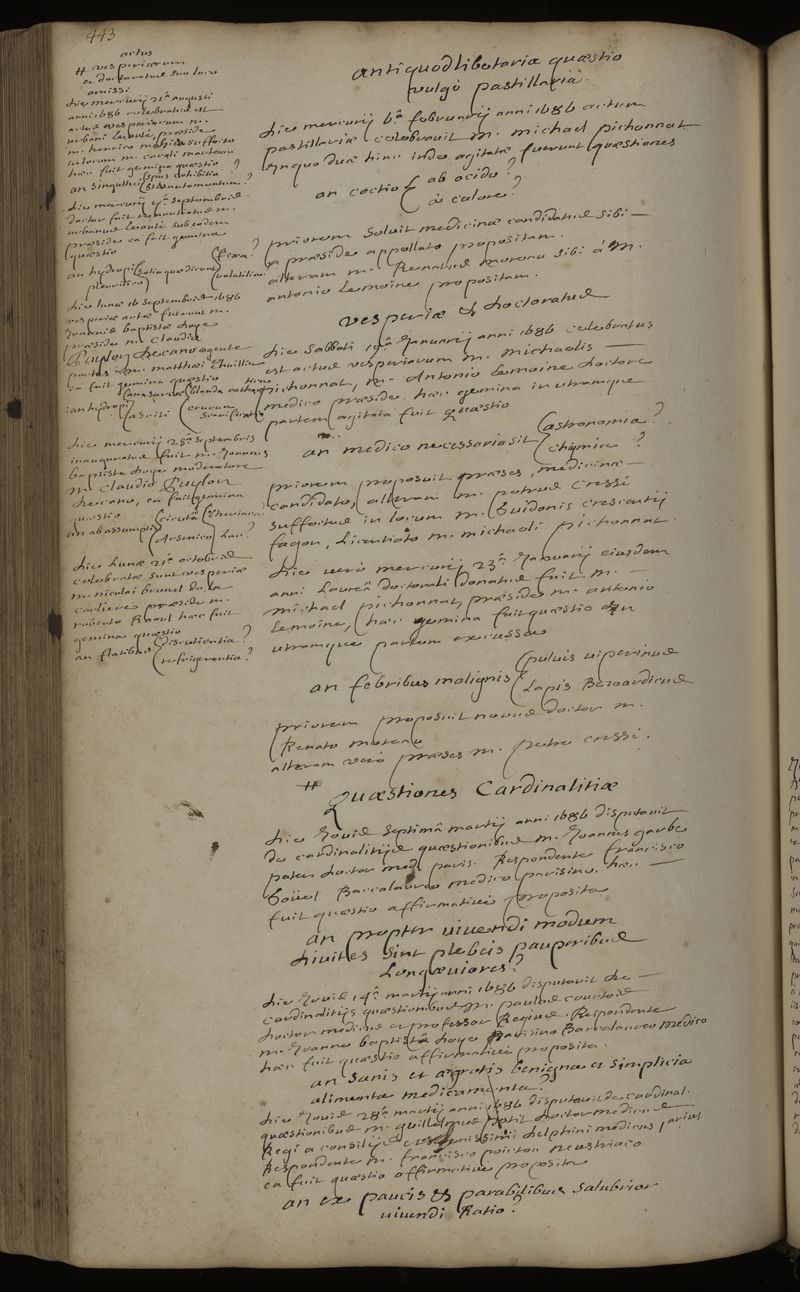 443
actus
# vesperiarum
a doctoratus suo loco
omissi
die mercurij 21a augusti
anni 1686 celebratus est
actus vesperiarum m.
urbani Leaulté, præside
m. henrico mahieu suffecto
in locum m. caroli marteau
hæc fuit gemina quæstio
an singultui spus cohibitio ?
sternutamentum ?
die mercurij 4a septembris
doctor fuit renuntiatus m.
urbanus Leaulté sub eodem
præside ea fuit gemina
quæstio
an hydropi salia quædicunt fixa ?
pleuritico volatilia
die lunæ 16 septembris 1686
vesperiæ actæ fuerunt m.
Joannis baptistæ doye
præside m. Claudio
Puylon decano agente
partes m. matthæi thuillier
ea fuit gemina quæstio
an hydropi anasarcæ blanda cathar
asciti crurum scarificatio
die mercurij 25a septembris
inauguratus fuit m. Joannes
baptista doye moderatore
m. Claudio Puylon
decano, ea fuit gemina
quæstio
an ab assumptis cicuta theriaca ?
Arsenico Lac ?
die Lunæ 21a octobris
celebratæ sunt vesperiæ
m. nicolai brunel de la
carliere præside m.
roberto Raoul hæc fuit
gemina quæstio
an flatibus discutientia ?
refrigerantia ?
antiquodlibetariæ quæstio
vulgò pastillaria.
die mercurij 6a februarij anni 1686 actum
pastillariæ celebravit m. michael pichonnat
in quo duæ hinc inde agitatæ fuerunt quæstiones
an coctio ab acido ?
à calore ?
priorem soluit medicinæ candidatus sibi —
a præside appellato propositam.
alteram m. Renatus moreau sibi a m.
antonio Lemoine propositam.
vesperiæ & doctoratus
die Sabbati 19a Januarij anni 1686 celebratus
est actus vesperiarum m. michaelis —
pichonnat, m. Antonio Lemoine doctore
medico præside. hæc gemina in utramque
partem agitata fuit quæstio
an medico necessaria sit astronomia ?
chymia ?
priorem proposuit præses, medicinæ —
candidato, alteram m. petrus cressé
suffectus in locum m. Guidonis crescentij
fagon, Licentiato m. michaeli pichonnat.
die verò mercurij 23a Januarij eiusdem
anni Laureâ doctorali donatus fuit m. —
michael pichonnat, præside m. antonio
Lemoine, hæc gemina fuit quæstio in
utramque partem excussa
an febribus malignis puluis viperinus
Lapis Bezoardicus
priorem proposuit nouus doctor m.
Renato moreau
alteram verò præses m. petro cressé.
#
Quæstiones Cardinalitiæ
die Jouis septimâ martij anni 1686 disputauit
de cardinalitijs quæstionibus m. Joannes garbe
pater doctor med. paris. Respondente francisco
Goüel Baccalaureo medico parisino. hæc —
fuit quæstio affirmatiuè proposita
an propter uiuendi modum
diuites sint plebeis pauperibus
Longæuiores ?
die Jouis 14a martij anni 1686 disputauit de —
cardinalitijs quæstionibus m. paulus courtois
doctor medicus a professor Regius. Respondente
m. Joanne baptistâ doye Parisino Baccalaureo medico
hæc fuit quæstio affirmatiuè proposita.
an sanis et ægrotis benigna et simplicia
alimenta medicamenta ?
die Jouis 28a martij anni 1686 disputauit de cardinal.
quæstionibus m. guillelmus petit doctor medicus
Regi a consilijs serenissimi delphini medicus parius
Respondente m. francisco poictou neustriaco
ea fuit quæstio affirmatiue proposita
an ex paucis & parabilibus salubrior
uiuendi Ratio ?